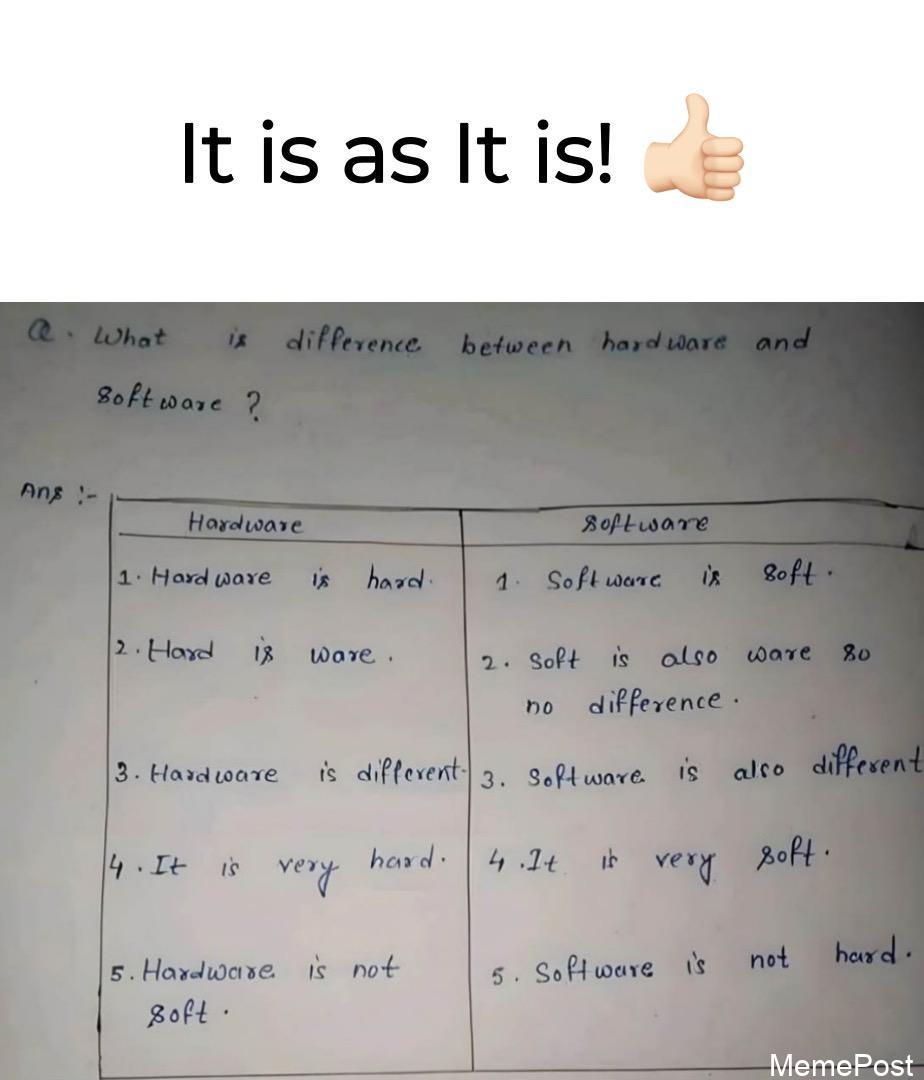 It is as It is! 👍🏻
Q. What is difference between hardware and
software ?
Ans :-
Hardware
Software
1. Hardware is hard.
1. Software is soft.
2. Hard is ware.
2. Soft is also ware so
no difference.
3. Hardware is different.
3. Software is also different
4. It is very hard.
4. It is very soft.
5. Hardware is not
soft.
5. Software is not hard.
MemePost